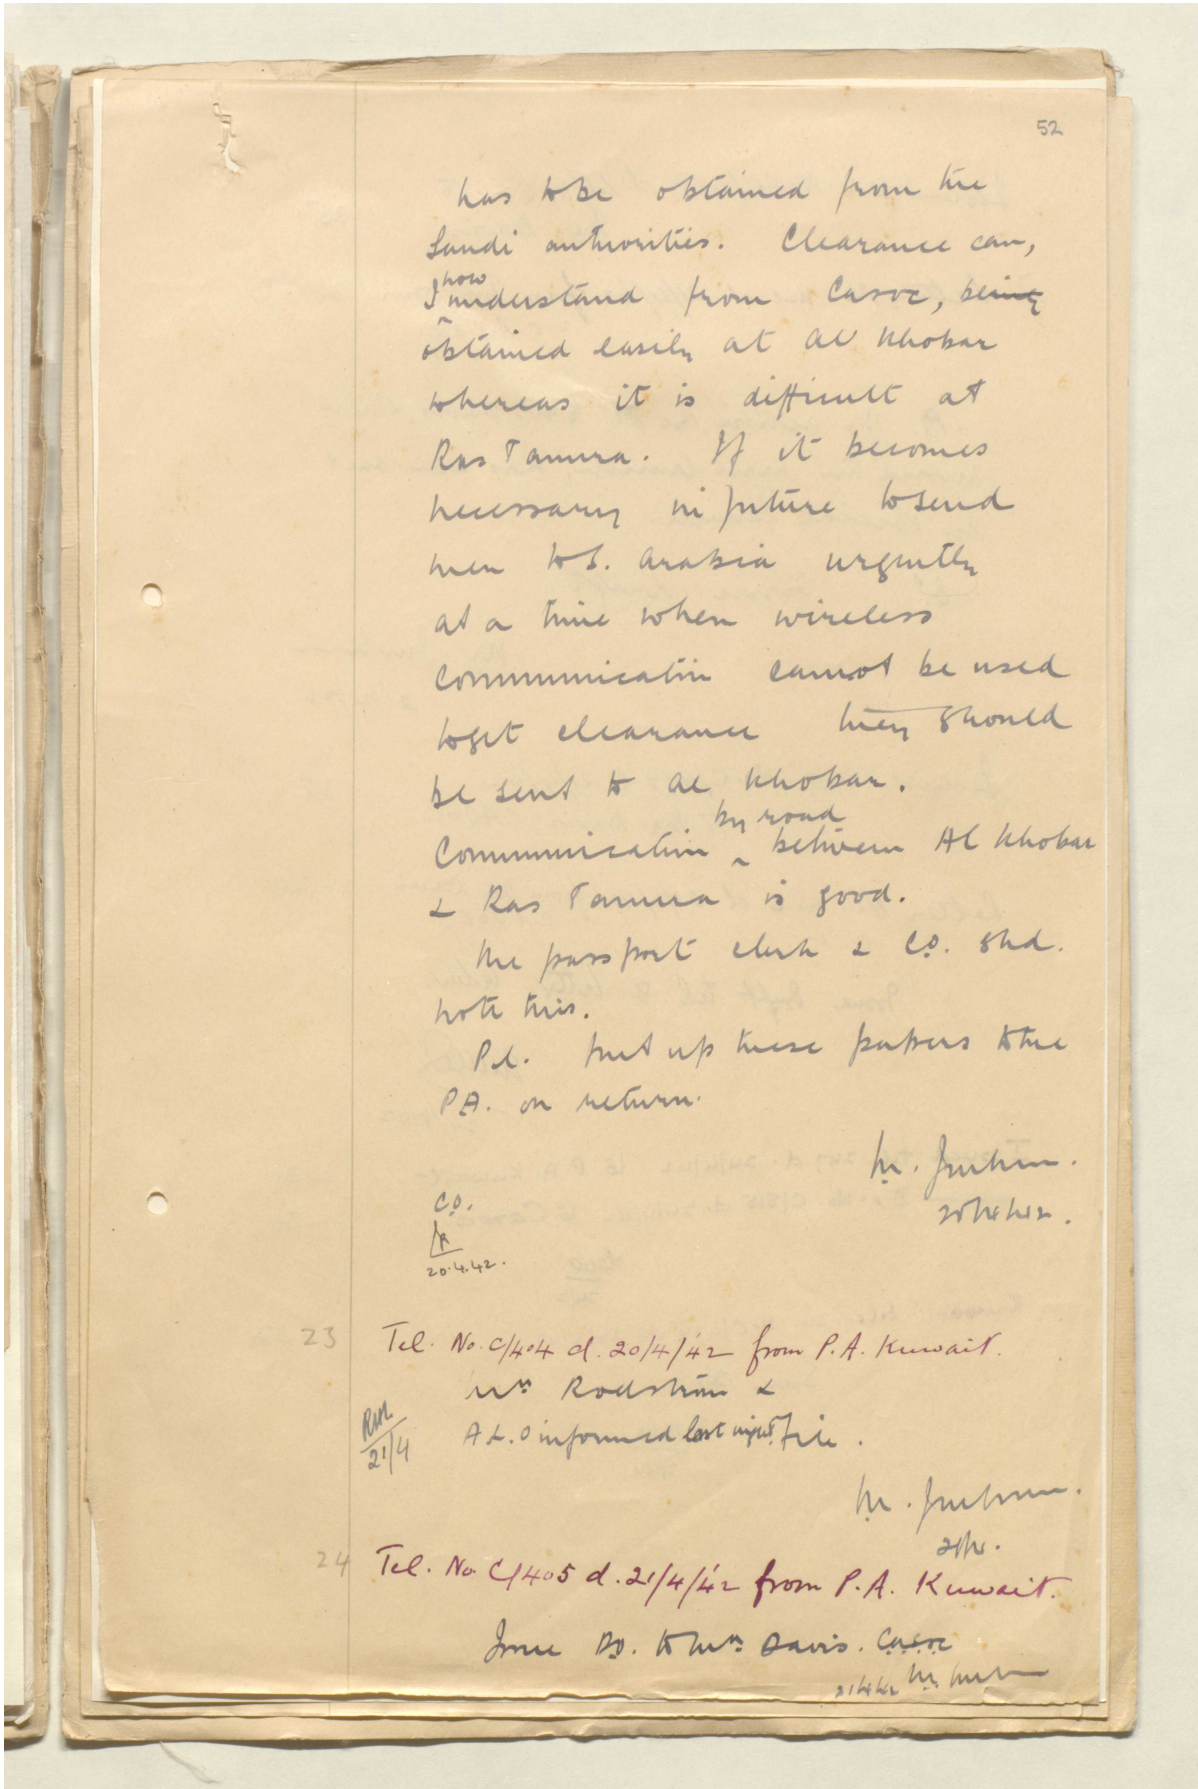 52
has to be obtained from the
Saudi authorities. Clearance can,
I now understand from Casoc, being
obtained easily at Al Khobar
whereas it is difficult at
Ras Tanura. If it becomes
necessary in future to send
men to S. Arabia urgently
at a time when wireless
communication cannot be used
to get clearance they should
be sent to Al Khobar.
Communication by road between Al Khobar
& Ras Tanura is good.
The passport clerk & C.O. shd.
note this.
P.l. put up these papers to the
P.A. on return.
20/4/42.
C.O.
20.4.42.
23
Tel. No. C/404 d. 20/4/42 from P.A. Kuwait.
Mrs Rodstrom &
A.L.O informed last night. File.
21/4
21/4.
24
Tel. No. C/405 d. 21/4/42 from P.A. Kuwait.
Issue to Mrs Davis. Casoc
21/4/42